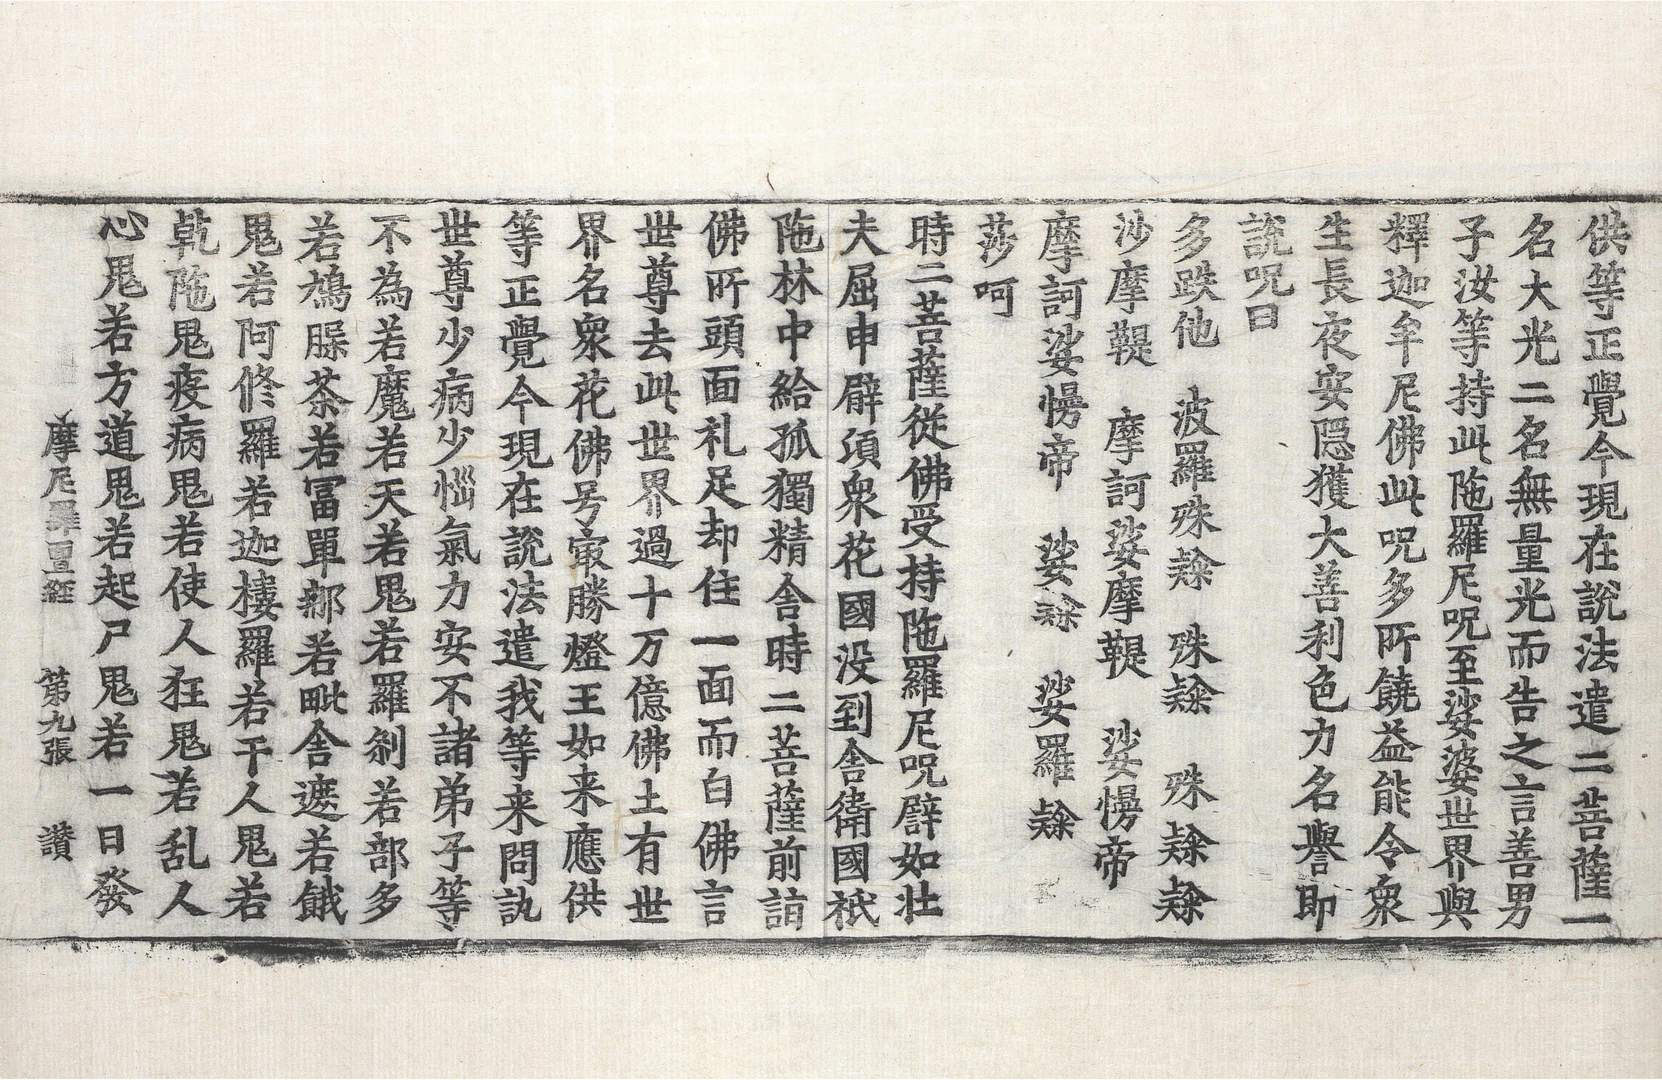 供等正覺今現在說法遣二菩薩一
名大光二名無量光而告之言善男
子汝等持此陁羅尼呪至娑婆世界與
釋迦牟尼佛此呪多所饒益能令衆
生長夜安隠獲大善利色力名譽即
說呪曰
多跌他　波羅殊𨽻　殊𨽻　殊𨽻𨽻
沙摩鞮　摩訶娑摩鞮　娑慢帝
摩訶娑慢帝　娑𨽻　娑羅𨽻
莎呵
時二菩薩從佛受持陁羅尼呪譬如壮
夫屈申臂湏衆花國没到舍衛國祇
陁林中給孤獨精舍時二菩薩前詣
佛所頭面礼足却住一面而白佛言
世尊去此世界過十万億佛土有世
界名衆花佛号㝡勝燈王如来應供
等正覺今現在說法遣我等来問訊
世尊少病少惱氣力安不諸弟子等
不為若魔若天若鬼若羅剎若部多
若鳩𦞂荼若冨單那若毗舍遮若餓
鬼若阿修羅若迦樓羅若干人鬼若
乾陁鬼疫病鬼若使人狂鬼若乱人
心鬼若方道鬼若起尸鬼若一日發
摩尼羅亶経　第九張　讃